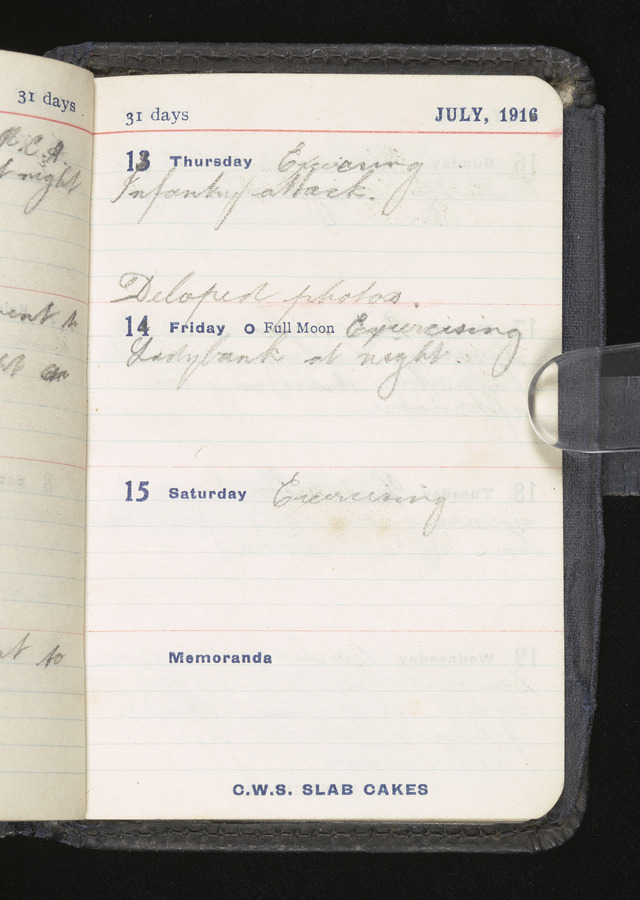 31 days
R.C.A.
t night
ent to
at to
31 days JULY, 1916
13 Thursday Exercising
Infantry attack.
Deloped photos.
14 Friday Full Moon Exercising
Ladybank at night.
15 Saturday Exercising
Memoranda
C.W.S. SLAB CAKES